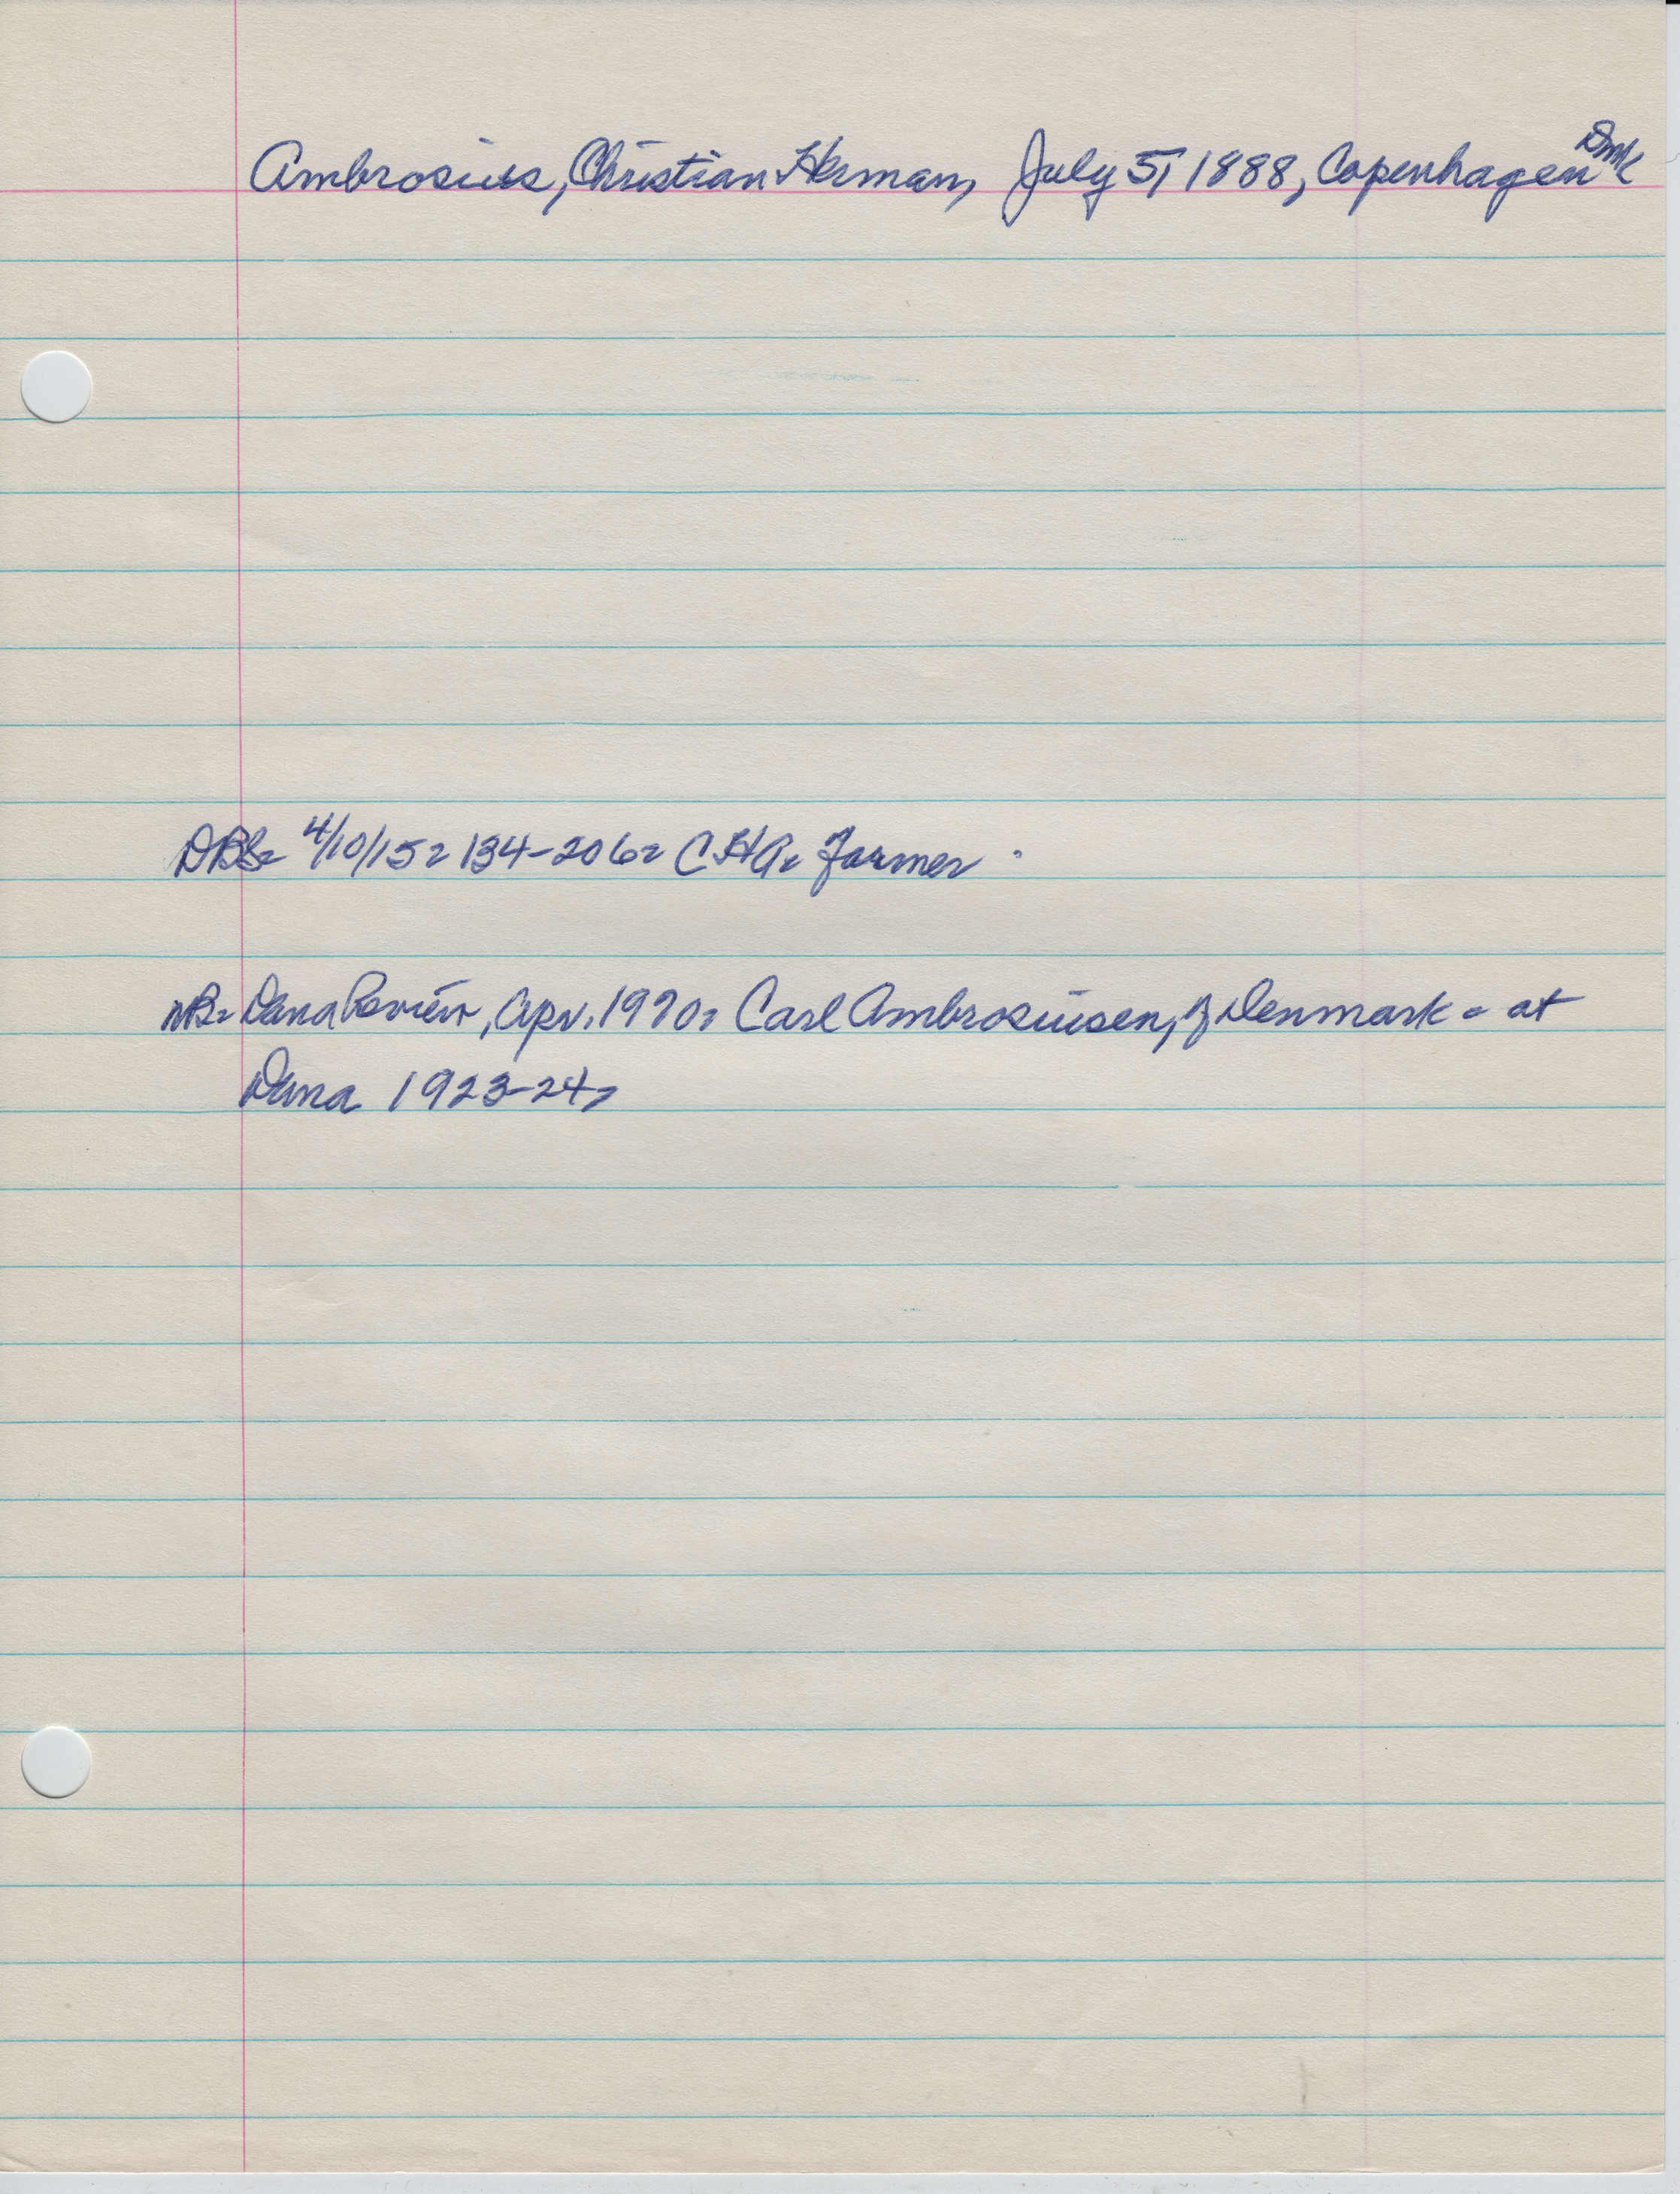 Ambrosius, Christian Herman, July 5, 1888, Copenhagen Dmk
DBS= 4/10/15= 134-206= CHA= Farmer.
NB= Dana Review, Apr. 1970= Carl Ambrosiusen, of Denmark = at
Dana 1923-24=